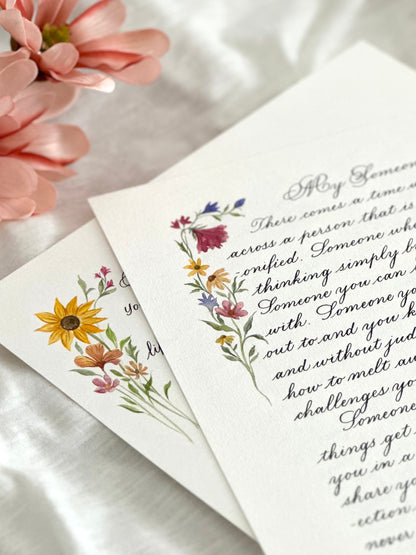 My Someon
There comes a time
across a person that is
onified. Someone wh
thinking simply b
Someone you can
with. Someone yo
out to and you k
and without jud
how to melt a
challenges yo
Someone
things get
you in a
share yo
-ection
never
yo
li